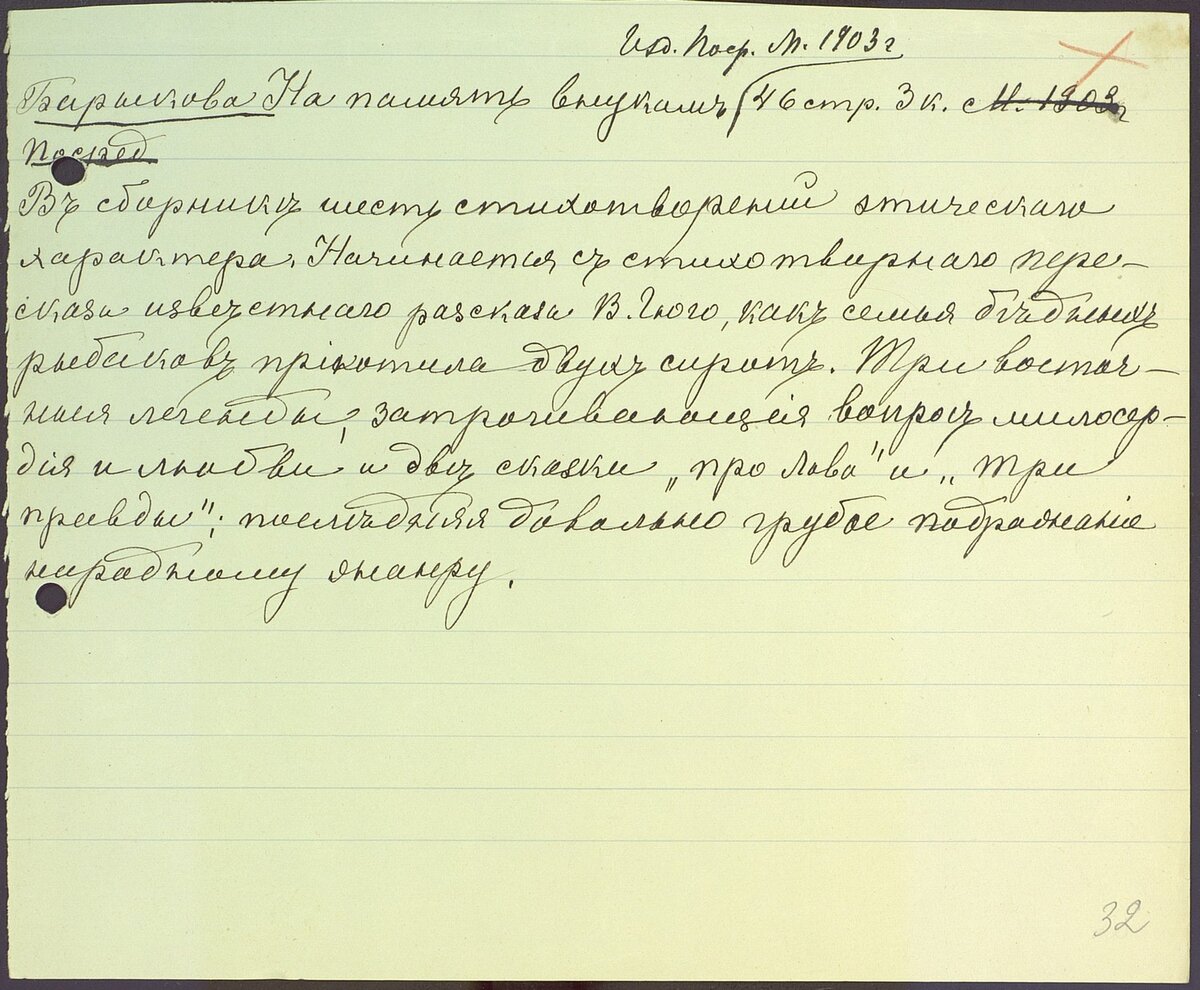 Изд. Поср. М. 1903 г
Барыкова На память внукамъ 46 стр. 3 к. М. 1903 г
Посред.
Въ сборникѣ шесть стихотворений этическаго
характера. Начинается съ стихотворнаго пере-
сказа извѣстнаго разсказа В. Гюго, какъ семья бѣдныхъ
рыбаковъ пріютила двухъ сиротъ. Три восточ-
ныя легенды, затрогивающія вопросъ милосер-
дія и любви и двѣ сказки „про Лава" и „Три
правды"; послѣдняя довольно грубое подражаніе
народному жанру.
32